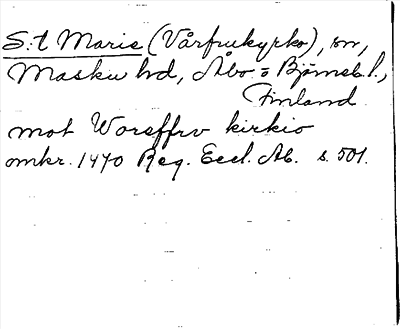 S:t Marie (Vårfrukyrko), sn,
Masku hd, Åbo o Björneb. l.,
Finland
mot Worffrv kirkio
omkr. 1470 Reg. Eccl. Ab. s. 501.